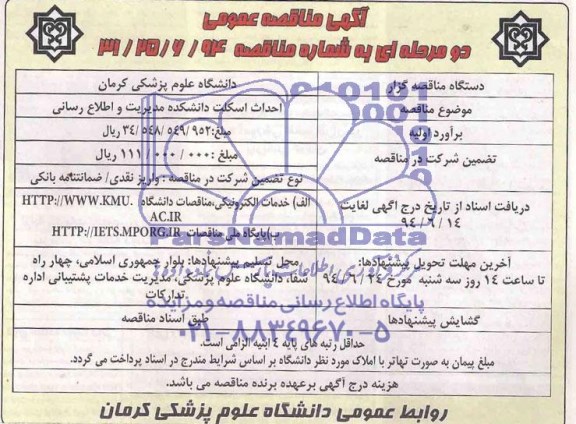 آگهی مناقصه عمومی
دو مرحله ای به شماره مناقصه ۳۱/۲۵/۶/۹۴
دستگاه مناقصه گزار
دانشگاه علوم پزشکی کرمان
موضوع مناقصه
احداث اسکلت دانشکده مدیریت و اطلاع رسانی
برآورد اولیه
مبلغ:۲۴/۵۴۸/۵۴۹/۹۵۲ ریال
تضمین شرکت در مناقصه
مبلغ :۱۱۱/۰۰۰/۰۰۰ ریال
نوع تضمین شرکت در مناقصه : واریز نقدی/ ضمانتنامه بانکی
دریافت اسناد از تاریخ درج آگهی لغایت
۹٤/٦/۱٤
الف) خدمات الکترونیکی،مناقصات دانشگاه HTTP://WWW.KMU.
AC.IR
ب)پایگاه ملی مناقصات HTTP://IETS.MPORG.IR
آخرین مهلت تحویل پیشنهادها:
تا ساعت ۱٤ روز سه شنبه مورخ ۹٤/٦/۲٤
محل تسلیم پیشنهادها: بلوار جمهوری اسلامی، چهار راه
شفا، دانشگاه علوم پزشکی، مدیریت خدمات پشتیبانی اداره
تدارکات
گشایش پیشنهادها
طبق اسناد مناقصه
حداقل رتبه های پایه ٤ ابنیه الزامی است.
مبلغ پیمان به صورت تهاتر با املاک مورد نظر دانشگاه بر اساس شرایط مندرج در اسناد پرداخت می گردد.
هزینه درج آگهی برعهده برنده مناقصه می باشد.
روابط عمومی دانشگاه علوم پزشکی کرمان
ParsNamadData
پایگاه اطلاع رسانی مناقصه و مزایده
۰۲۱-۸۸۳۴۹۶۷۰-۵